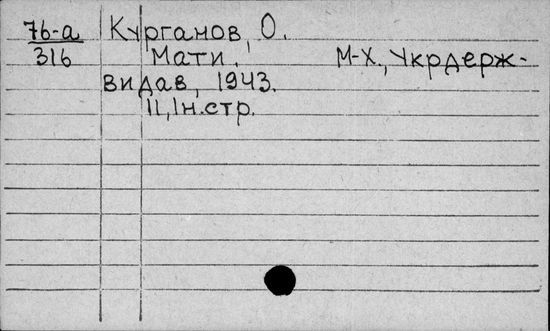 76-а Курганов, О.
316 Мати. М-Х., Укрдерж-
видав, 1943.
11, Ін.стр.